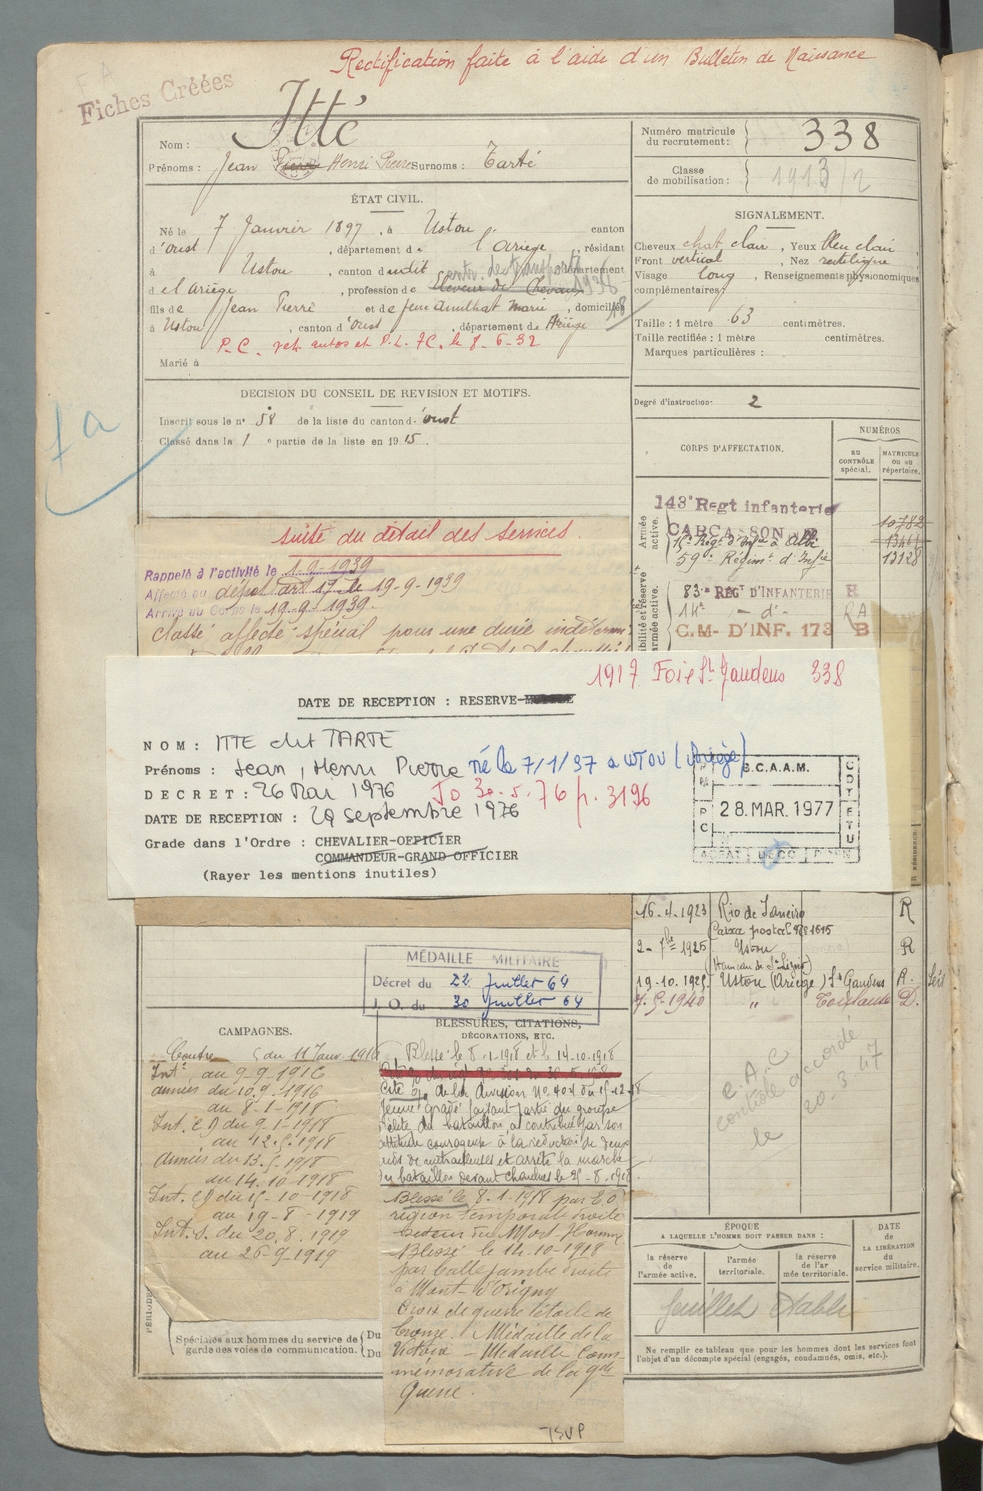 Rectification faite à l'aide d'un Bulletin de Naissance
Fiches Créées
Nom : Itté
Prénoms : Jean Pierre Henri Pierre Surnoms : Tarté
Numéro matricule du recrutement : 338
Classe de mobilisation : 1913/2
ÉTAT CIVIL.
Né le 7 Janvier 1897, à Ustou canton
d'Oust, département de l'Ariège, résidant
à Ustou, canton dudit, département
d e l'Ariège, profession de Eleveur de Chevaux
fils de Jean Pierre et de feue Amilhat Marie, domiciliés
à Ustou, canton d'Oust, département de Ariège
P.C. veh. autos et P.L. 7C. le 8-6-32
Marié à
SIGNALEMENT.
Cheveux chat. clair, Yeux bleu clair
Front vertical, Nez rectiligne
Visage long, Renseignements physionomiques
complémentaires :
Taille : 1 mètre 63 centimètres.
Taille rectifiée : 1 mètre centimètres.
Marques particulières :
Degré d'instruction : 2
DECISION DU CONSEIL DE REVISION ET MOTIFS.
Inscrit sous le n° 58 de la liste du canton d'Oust
Classé dans la 1e partie de la liste en 1915.
1a
CORPS D'AFFECTATION.
NUMÉROS
AU CONTRÔLE spécial.
MATRICULE OU AU répertoire.
Armée active.
143e Regt infanterie
CARCASSONNE 10782
15e Rég. d'Infie à Albi 13461
59e Régiment d'Infie 13128
83e REGt D'INFANTERIE R
14e - d°- RA
C.M- D'INF. 173 B
suite du détail des services.
Rappelé à l'activité le 1-9-1939
Affecté au dépôt art 17 le 19-9-1939
Arrivé au Corps le 19-9-1939.
Classé affecté spécial pour une durée indéterm
1917 Foix St Gaudens 338
DATE DE RECEPTION : RESERVE-
NOM : ITTE dit TARTE
Prénoms : Jean, Henri Pierre né le 7/1/97 a USTOU (Ariège)
DECRET : 26 Mai 1976 JO 30.5.76 p. 3196
DATE DE RECEPTION : 29 septembre 1976
Grade dans l'Ordre : CHEVALIER-OFFICIER
COMMANDEUR-GRAND OFFICIER
(Rayer les mentions inutiles)
B.C.A.A.M.
28 MAR. 1977
16-4-1923 Rio de Janeiro R
Caixa postal 1615
2- 7bre 1925 Ustou R
19.10.1925 Ustou (Ariège) St Gaudens A.
7.5.1940 " Toulouse D.
MÉDAILLE MILITAIRE
Décret du 22 juillet 64
J. O. du 30 juillet 64
CAMPAGNES.
Contre du 11 Janv. 1916
Intre au 9-9-1916
armées du 10.9-1916
au 8-1-1918
Int. C) du 9-1-1918
au 12-5-1918
Armées du 13-5-1918
au 14.10-1918
Int. C) du 15-10-1918
au 19-8-1919
Int. S. du 20.8.1919
au 26-9-1919
BLESSURES, CITATIONS,
DÉCORATIONS, ETC.
Blessé le 8-1-1918 et le 14-10-1918
Cité O/ de la division n° 404 du 15-12-18
Jeune gradé faisant partie du groupe
d'élite du bataillon, a contribué par son
attitude courageuse à la réduction de deux
nids de mitrailleuses et arrêté la marche
du bataillon devant
Blessé le 8-1-1918 par E.O
région temporale droite
Secteur du Mort-Homme.
Blessé le 14-10-1918
par balle jambe droite
à Mont-d'Origny
Croix de guerre étoile de
bronze. Médaille de la
Victoire - Médaille Com-
mémorative de la gde
Guerre.
TSVP
C.A.C
contrôle accordé
le 20-3-47
ÉPOQUE
A LAQUELLE L'HOMME DOIT PASSER DANS :
la réserve de l'armée active.
l'armée territoriale.
la réserve de l'armée territoriale.
DATE DE LA LIBÉRATION du service militaire.
feuillet établi
Ne remplir ce tableau que pour les hommes dont les services font
l'objet d'un décompte spécial (engagés, condamnés, omis, etc.).
Spéciales aux hommes du service de
garde des voies de communication.
Du
Du